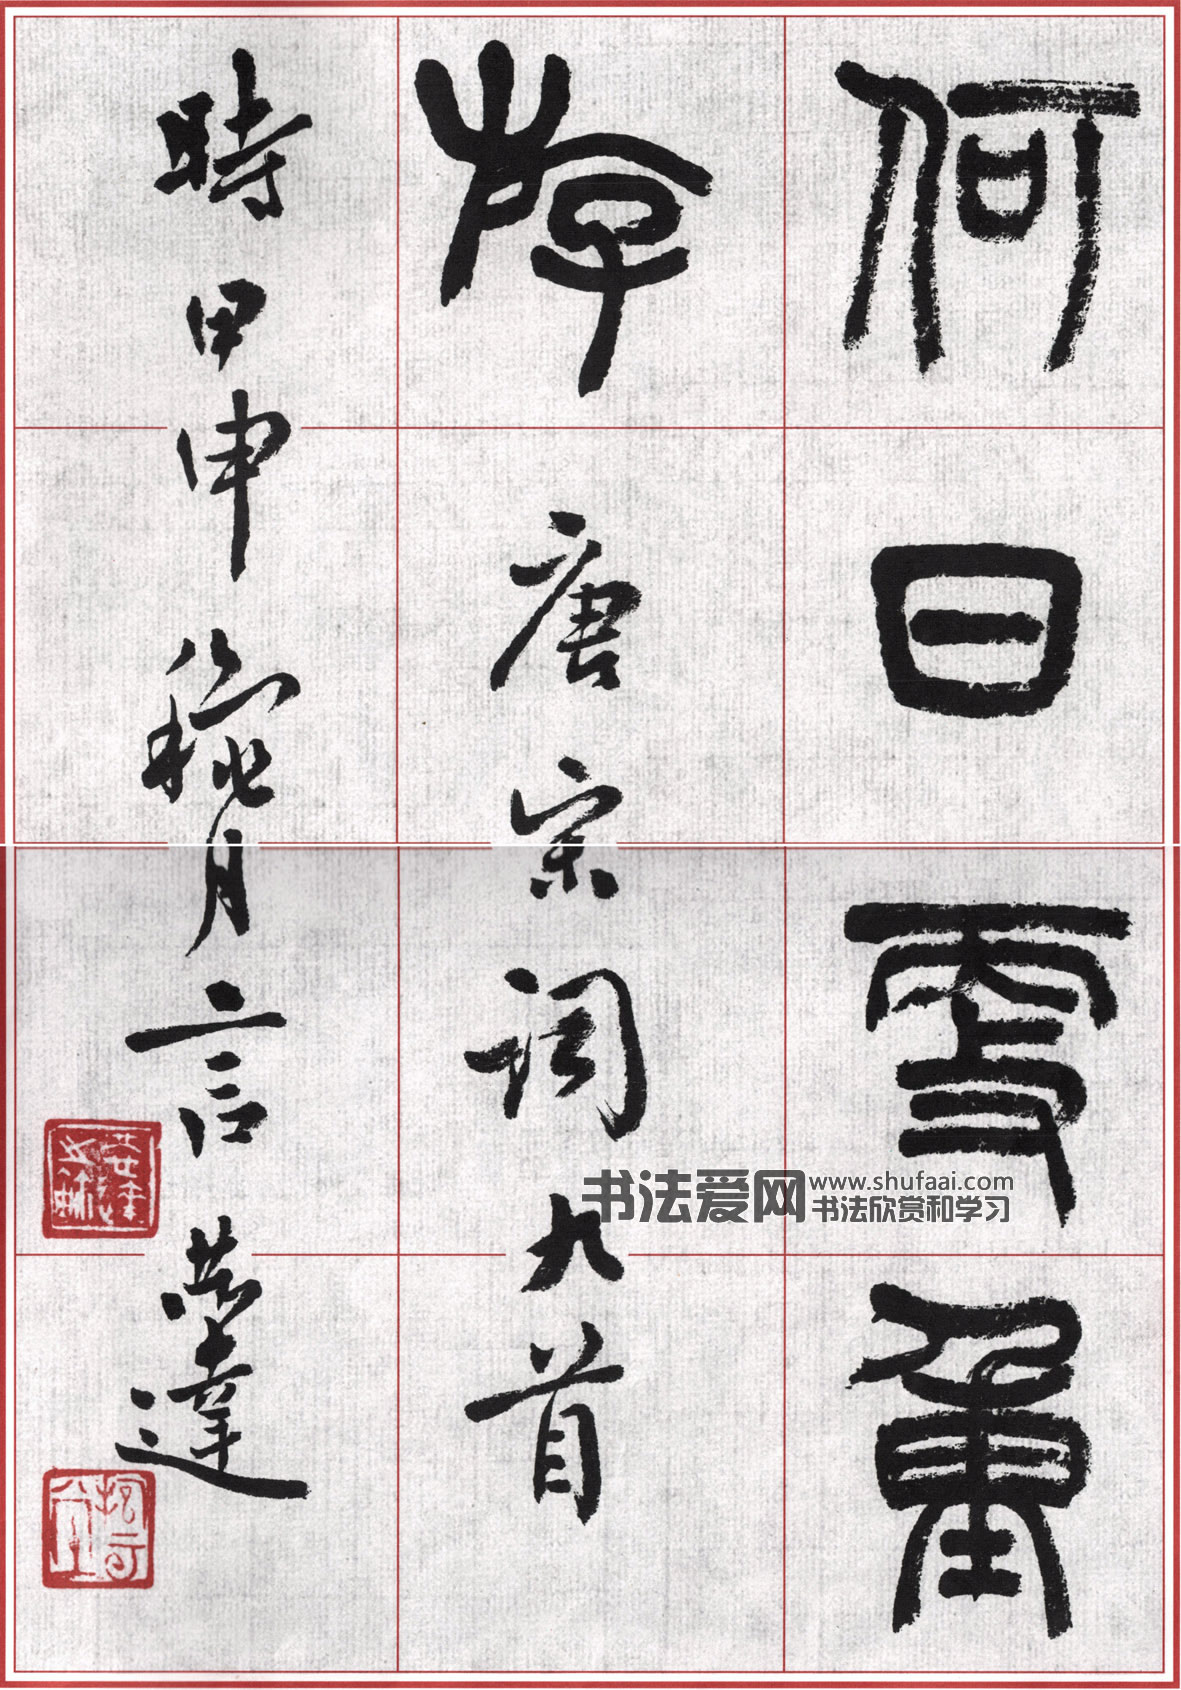 何日更重
斿 唐宋詞九首
時甲申秋月言恭達
书法爱网
www.shufaai.com
书法欣赏和学习